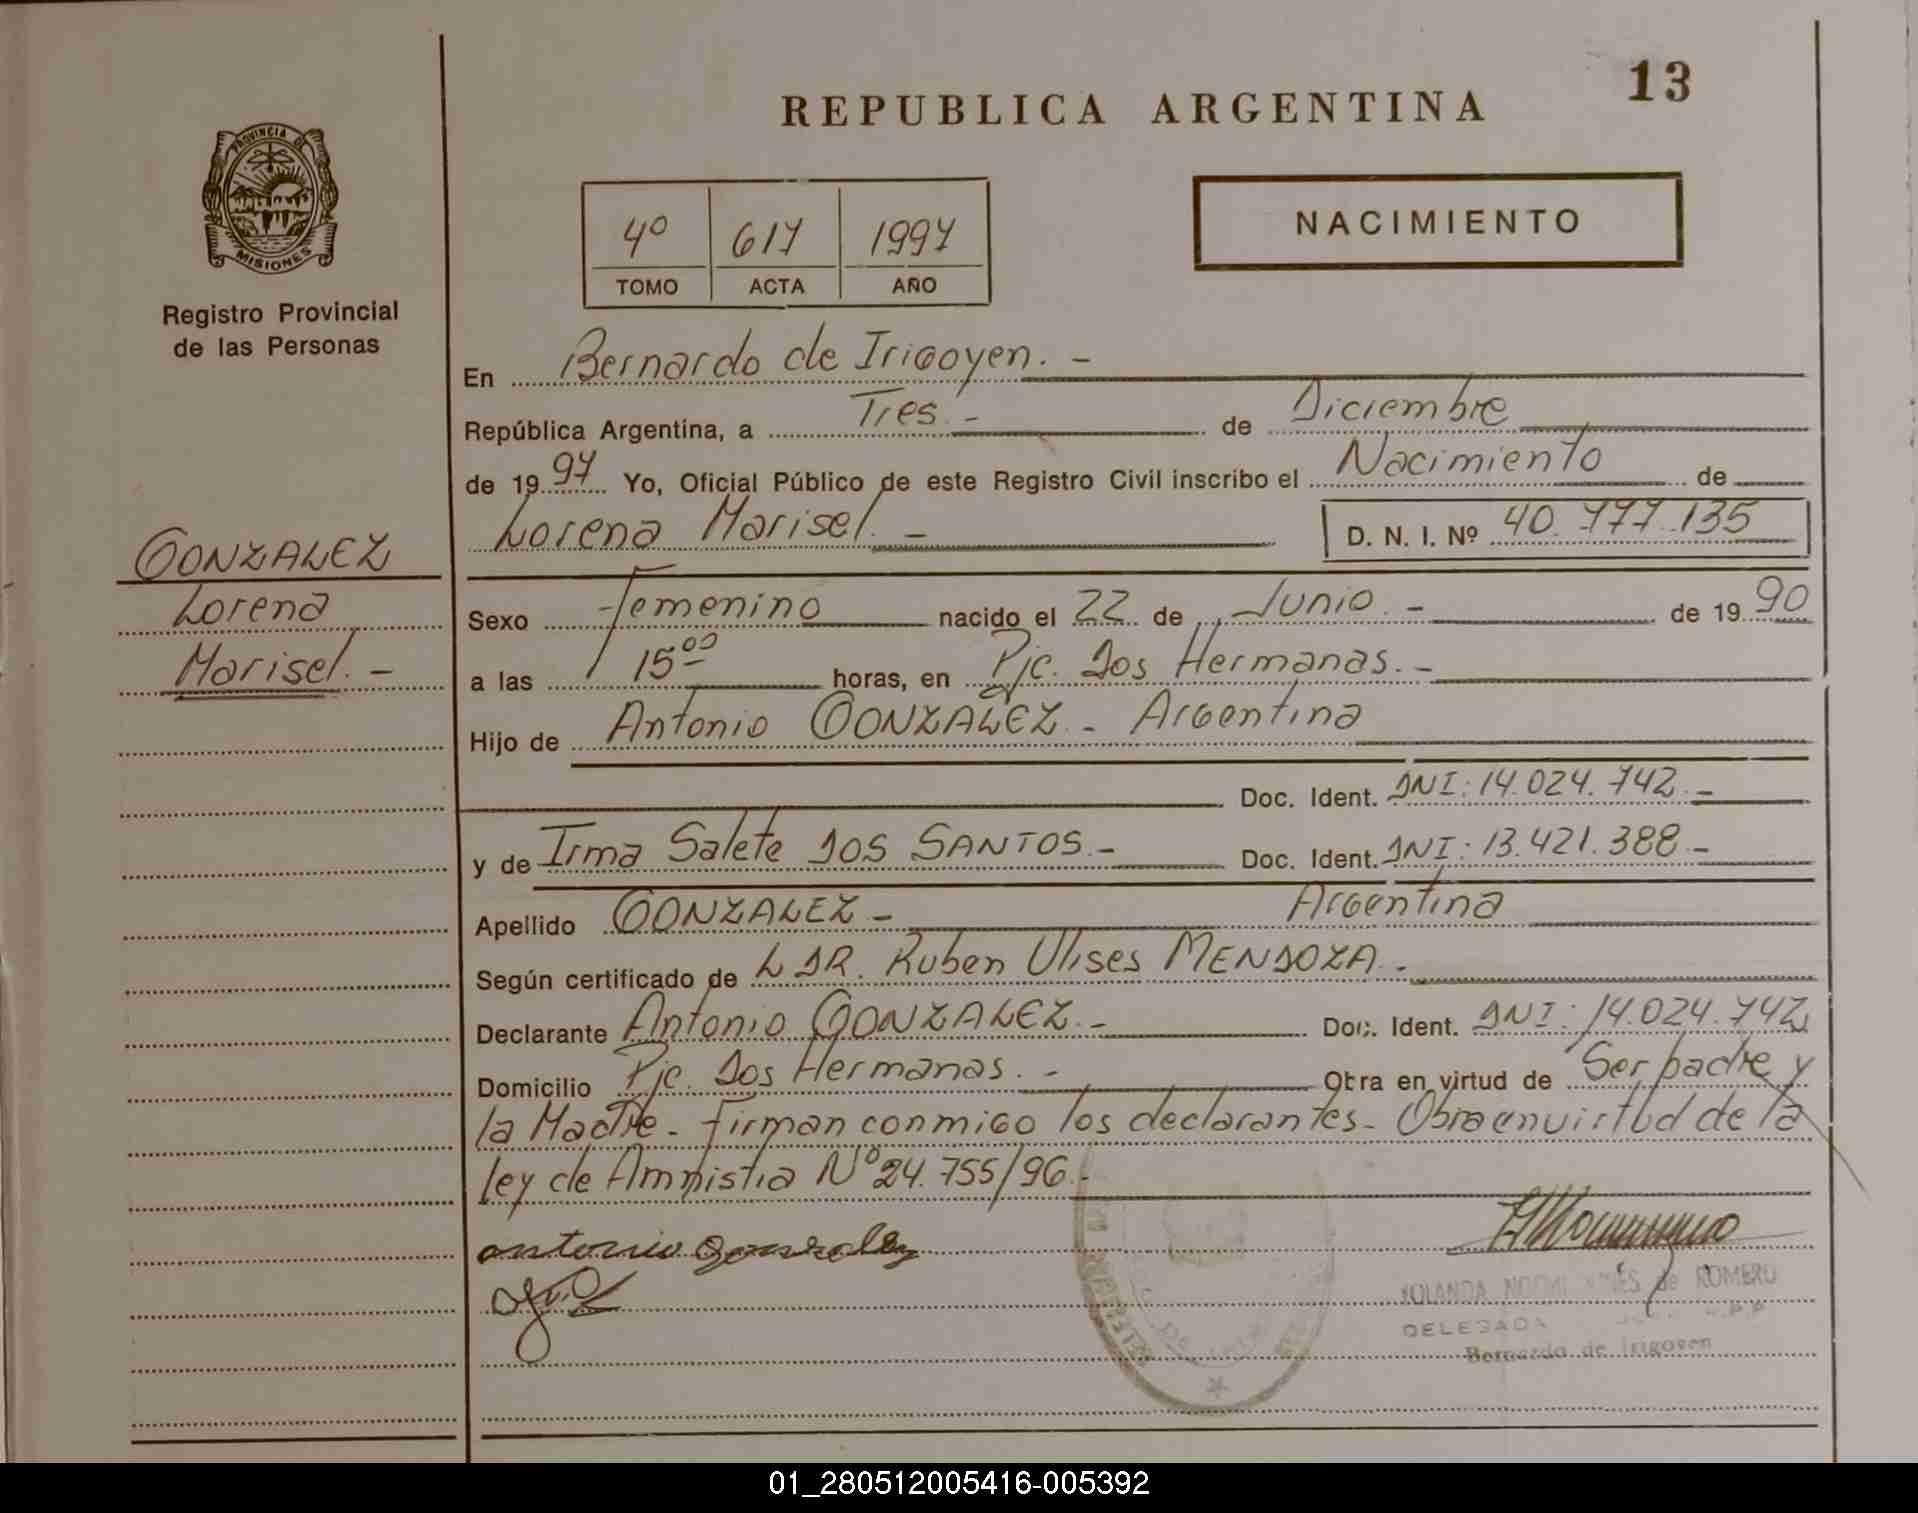 13
REPUBLICA ARGENTINA
PROVINCIA DE
MISIONES
Registro Provincial
de las Personas
4º 617 1997
TOMO ACTA AÑO
NACIMIENTO
En Bernardo de Irigoyen. -
República Argentina, a Tres. - de Diciembre
de 1997 Yo, Oficial Público de este Registro Civil inscribo el Nacimiento de
Lorena Marisel. - D. N. I. Nº 40.777.135
GONZALEZ
Lorena
Marisel. -
Sexo Femenino nacido el 22 de Junio. - de 1990
a las 15⁰⁰ horas, en Pje. Dos Hermanas. -
Hijo de Antonio GONZALEZ - Argentina
Doc. Ident. DNI: 14.024.742. -
y de Irma Salete DOS SANTOS. - Doc. Ident. DNI: 13.421.388 -
Argentina
Apellido GONZALEZ -
Según certificado de L DR. Ruben Ulises MENDOZA. -
Declarante Antonio GONZALEZ. - Doc. Ident. DNI: 14.024.742
Domicilio Pje. Dos Hermanas. - Obra en virtud de Ser padre y
la Madre - Firman conmigo los declarantes - Obra en virtud de la
ley de Amnistia Nº 24.755/96. -
antonio gonzalez
YOLANDA NOEMI de ROMERO
DELEGADA
Bernardo de Irigoyen
01_280512005416-005392